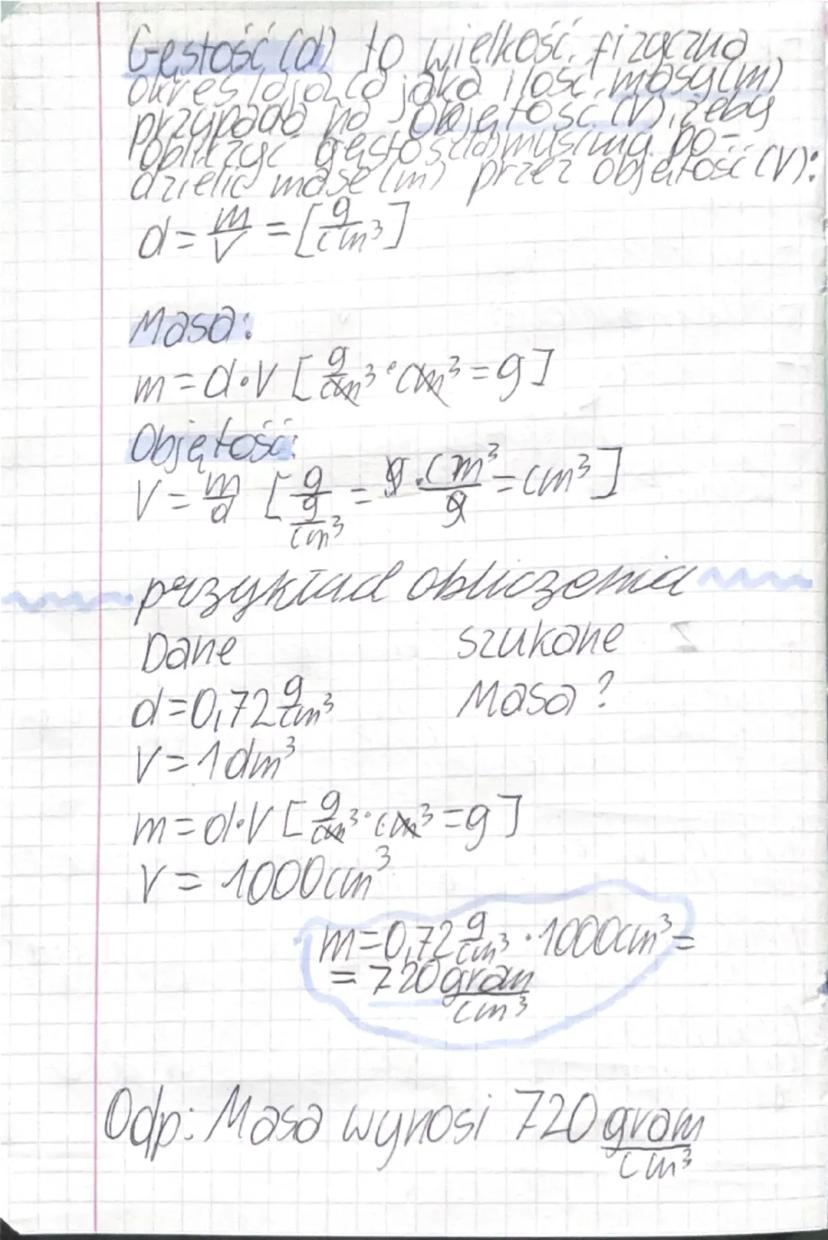 Gęstość (d) to wielkość fizyczna
określająca jaka ilość masy (m)
przypada na objętość (V), żeby
obliczyć gęstość (d) musimy po-
dzielić masę (m) przez objętość (V):
d = m/V = [g/cm³]
Masa:
m = d·V [g/cm³ · cm³ = g]
Objętość:
V = m/d [g/(g/cm³) = g·cm³/g = cm³]
przykład obliczenia
Dane szukane
d = 0,72 g/cm³ Masa?
V = 1 dm³
m = d·V [g/cm³ · cm³ = g]
V = 1000 cm³
m = 0,72 g/cm³ · 1000 cm³ =
= 720 gram/cm³
Odp: Masa wynosi 720 gram/cm³